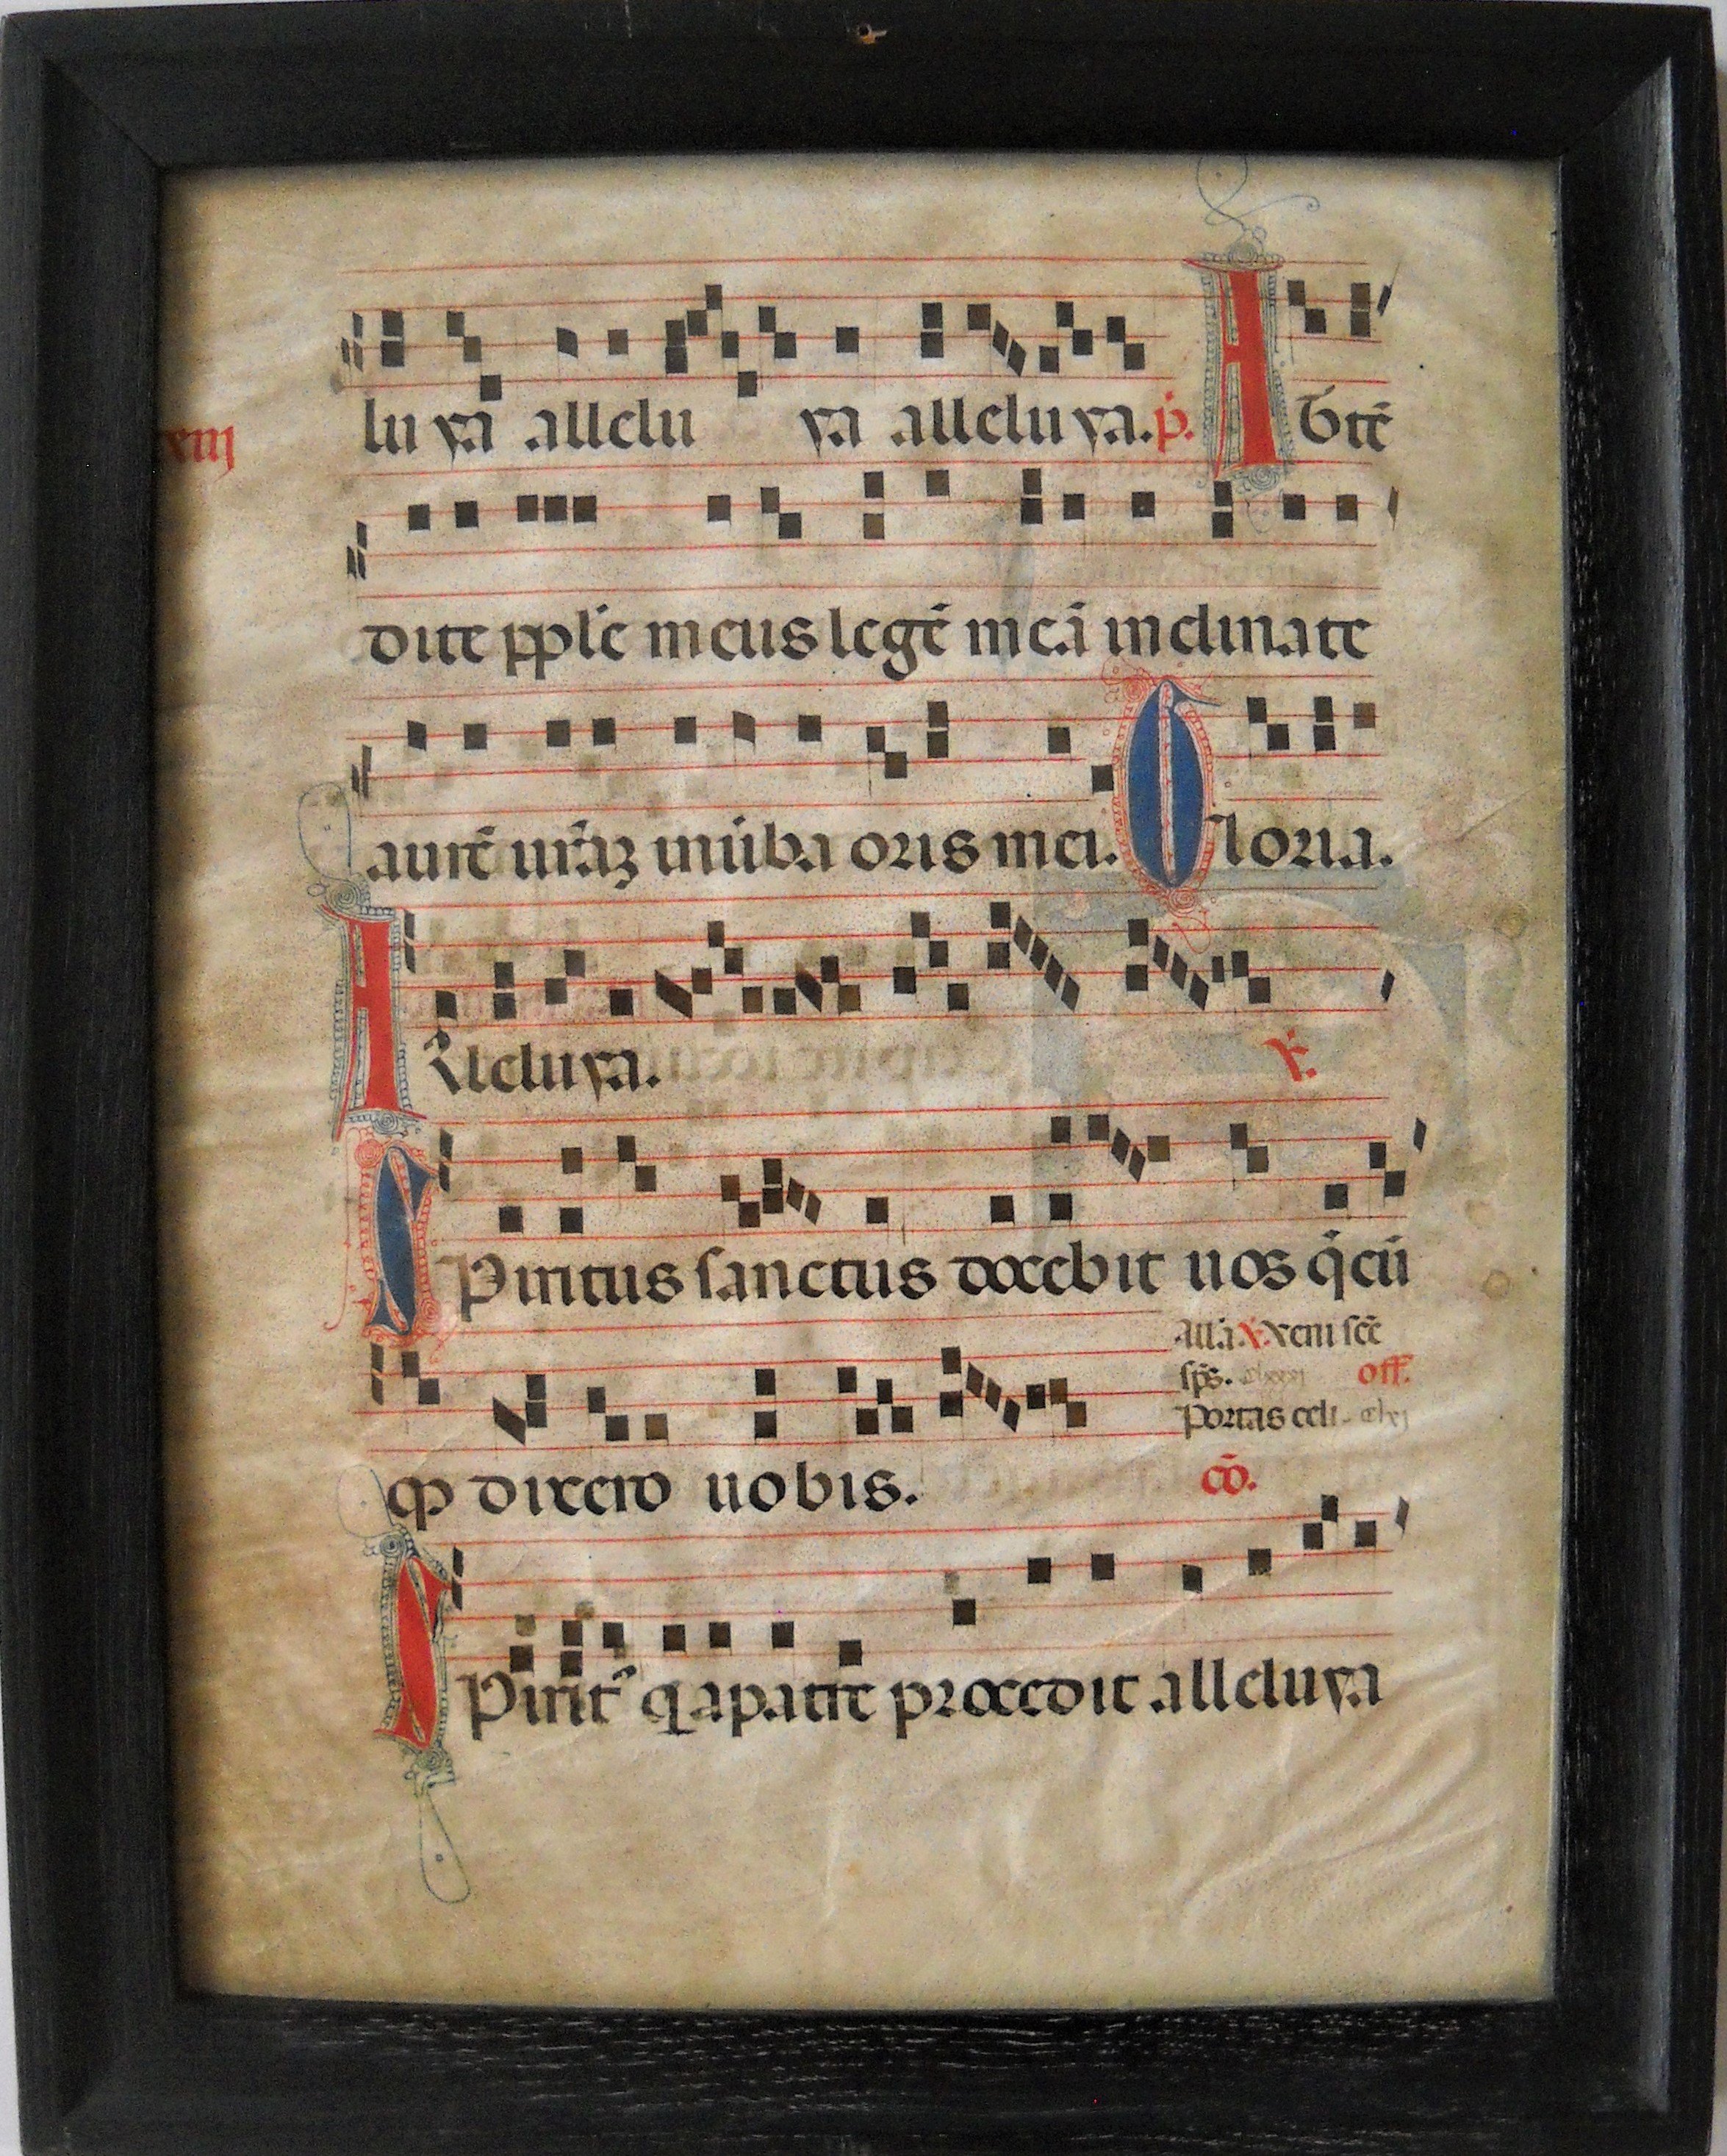 lu ya allelu ya alleluya. p. A tte
dite pple meus legē meā inclinate
aurē urāȝ in ūba oris mei. Gloria.
A lleluya. ℣.
SPiritus sanctus docebit uos q̄cū
All'a. ℣. Xeni sc̄e
sps̄. off.
Portas celi.
qȝ dixero uobis. cō.
SPirit⁹ q a patre procedit alleluya